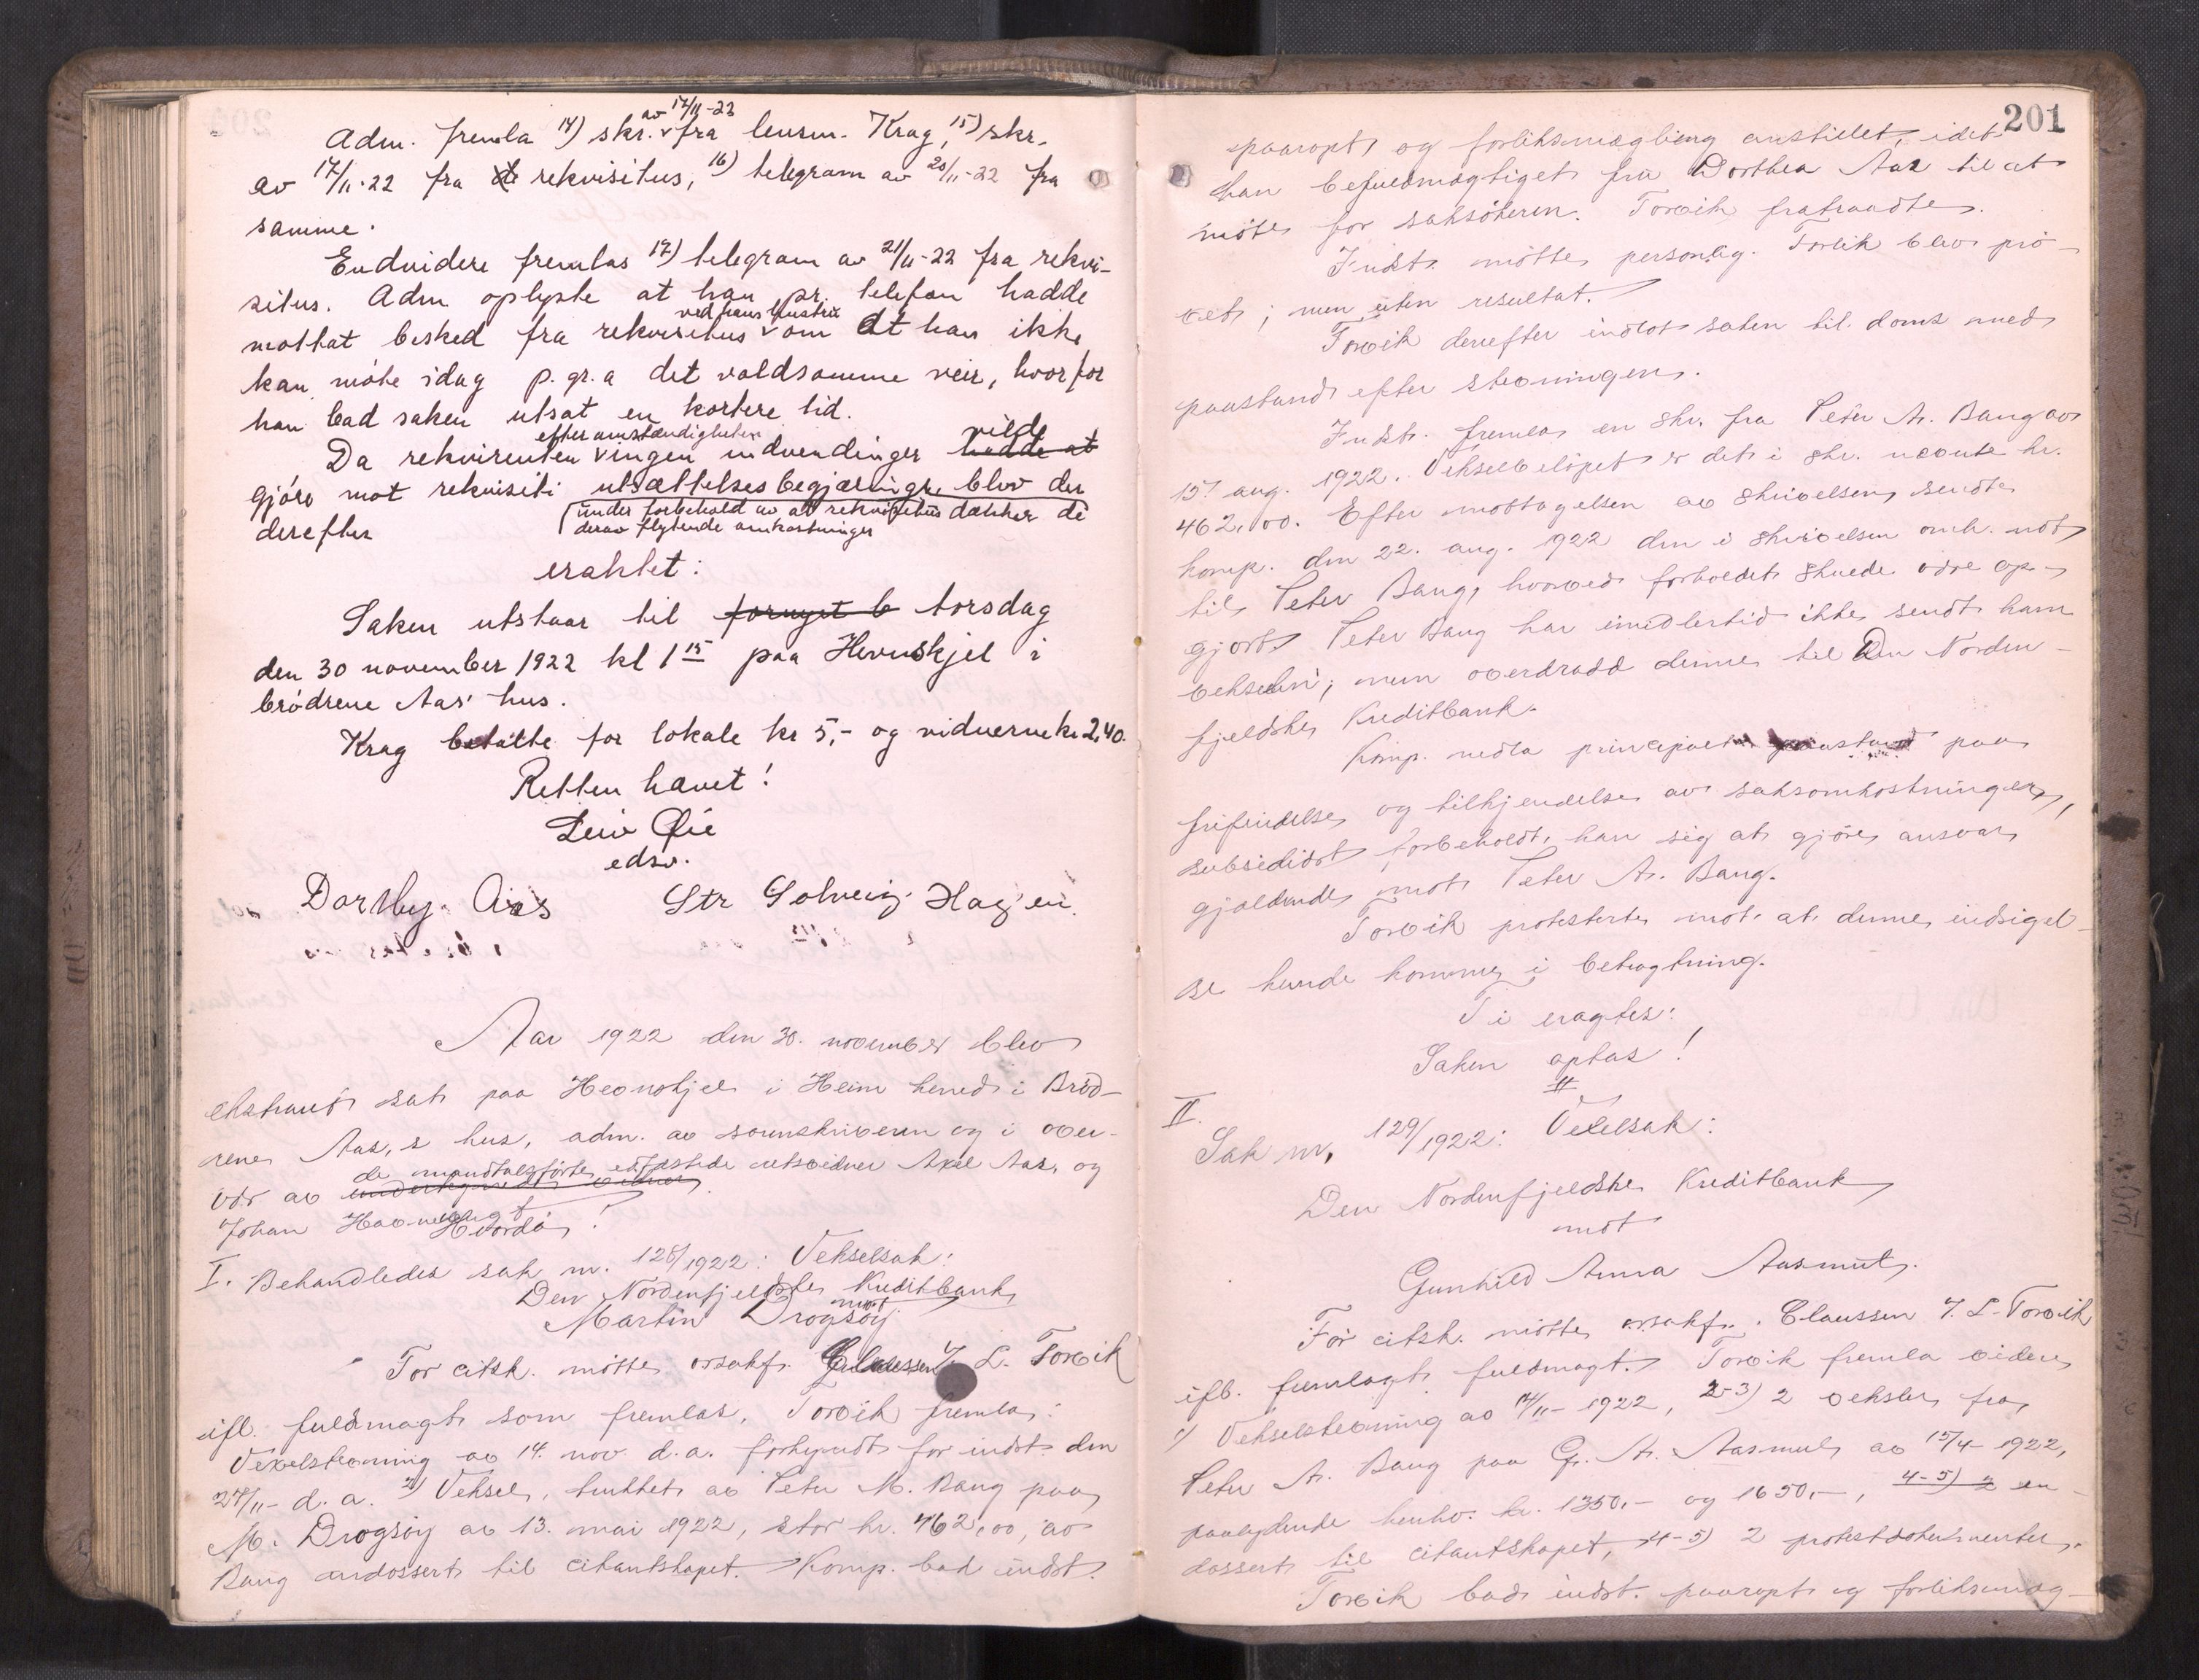 Adm. fremla 14) skr. av 17/11-22 fra lensm. Krag, 15) skr.
av 17/11-22 fra rekvisitus, 16) telegram av 20/11-22 fra
samme.
Endvidere fremlas 17) telegram av 21/11-22 fra rekvi-
situs. Adm oplyste at han pr. telefon hadde
mottat besked fra rekvisitus ved hans hustru om at han ikke
kan møte idag p.gr.a det voldsomme veir, hvorfor
han bad saken utsat en kortere tid.
Da rekvirenten efter omstændigheten ingen indvendinger hadde at vilde
gjøre mot rekvisiti utsættelsesbegjæring, blev der
derefter (under forbehold av at rekvisitus dækker de
derav flytende omkostninger
eraktet:
Saken utstaar til fornyet b torsdag
den 30 november 1922 kl 1 15 paa Hevnskjel i
brødrene Aas' hus.
Krag betalte for lokale kr 5,- og vidnerne kr 2,40.
Retten hævet!
Leiv Øie
edsv.
Dorthy. Aas Str Solveig. Hagen
Aar 1922 den 30. november blev
ekstraret sat paa Hevnskjel i Heim herred i Brød-
rene Aas,s hus, adm. av sorenskriveren og i over-
vær av undertegnede vidner de mandtalsførte, edfæstede retsvidner Axel Aas, og
Johan Hevnskjel
Hvorda!
I. Behandledes sak nr. 128/1922: Vekselsak:
Den Nordenfjeldske Kreditbank
mot
Martin Drogsøy
For citsk. møtte orsakf. Claussen v. L. Torvik
ifl. fuldmagt som fremlas. Torvik fremla:
Vexelstevning av 14. nov. d.a. forkyndt for indst. den
27/11- d.a. 2) Veksel, trukket av Peter M. Bang paa
M. Drogsøy av 13. mai 1922, stor kr. 462,00, av
Bang endossert til citantskapet. Komp. bad indst.
201
paaropt og forliksmægling anstillet, idet
han befuldmægtiget fru Dorthea Aas til at
møte for saksøkeren. Torvik fratraadte.
Indst. møtte personlig. Forlik blev prø-
vet; men uten resultat.
Torvik derefter indlot saken til doms med
paastand efter stevningen.
Indst. fremla en skr. fra Peter A. Bang av
15. aug. 1922. Vekselbeløpet er det i skr. nævnte kr.
462,00. Efter mottagelsen av skrivelsen sendte
komp. den 22. aug. 1922 den i skrivelsen omh. not
til Peter Bang, hvorved forholdet skulde være op-
gjort. Peter Bang har imidlertid ikke sendt ham
vekselen; men overdradd denne til Den Norden-
fjeldske Kreditbank.
Komp. nedla principalt paastand paa
frifindelse og tilkjendelse av saksomkostninger,
subsidiært forbeholdt han sig at gjøre ansvar
gjældende mot Peter A. Bang.
Torvik protesterte mot at denne indsigel-
se kunde komme i betragtning.
Ti eragtes:
Saken optas!
II.
Sak nr. 129/1922: Vexelsak:
Den Nordenfjeldske Kreditbank
mot
Gunhild Anna Aasmul.
For citsk. møtte orsakf. Claussen v. L. Torvik
ifl. fremlagt fuldmagt. Torvik fremla videre
1) Vekselstevning av 14/11-1922, 2-3) 2 veksler fra
Peter A. Bang paa G. A. Aasmul av 15/4-1922,
paalydende henhv. kr. 1350,- og 1650,-, 4-5) 2 en-
dossert til citantskapet, 4-5) 2 protestdokumenter.
Torvik bad indst. paaropt og forliksmæg-